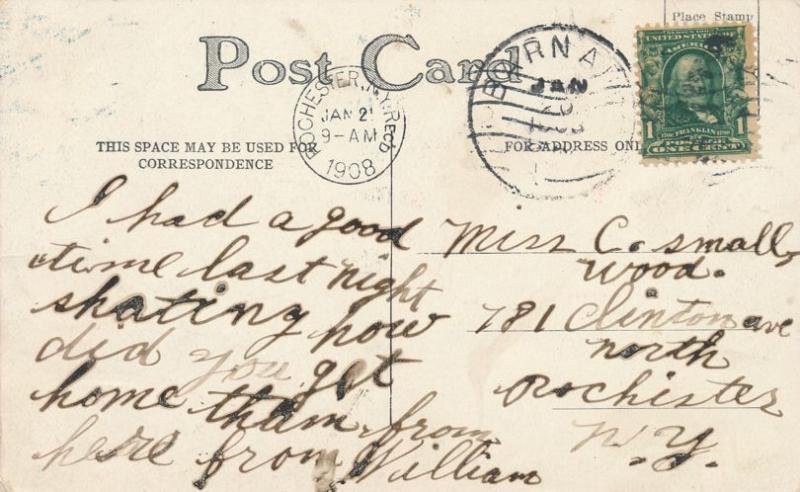 Place Stamp
Post Card
ROCHESTER, N.Y. REC'D
JAN 21
9-AM
1908
AUBURN
JAN
20
UNITED STATES OF
AMERICA
1 FRANKLIN 1
POSTAGE
ONE CENT
THIS SPACE MAY BE USED FOR
CORRESPONDENCE
FOR ADDRESS ONL
I had a good
time last night
skating how
did you get
home tham from
here from William
Miss C. small,
wood.
781 Clinton ave
north
Rochester
N.Y.